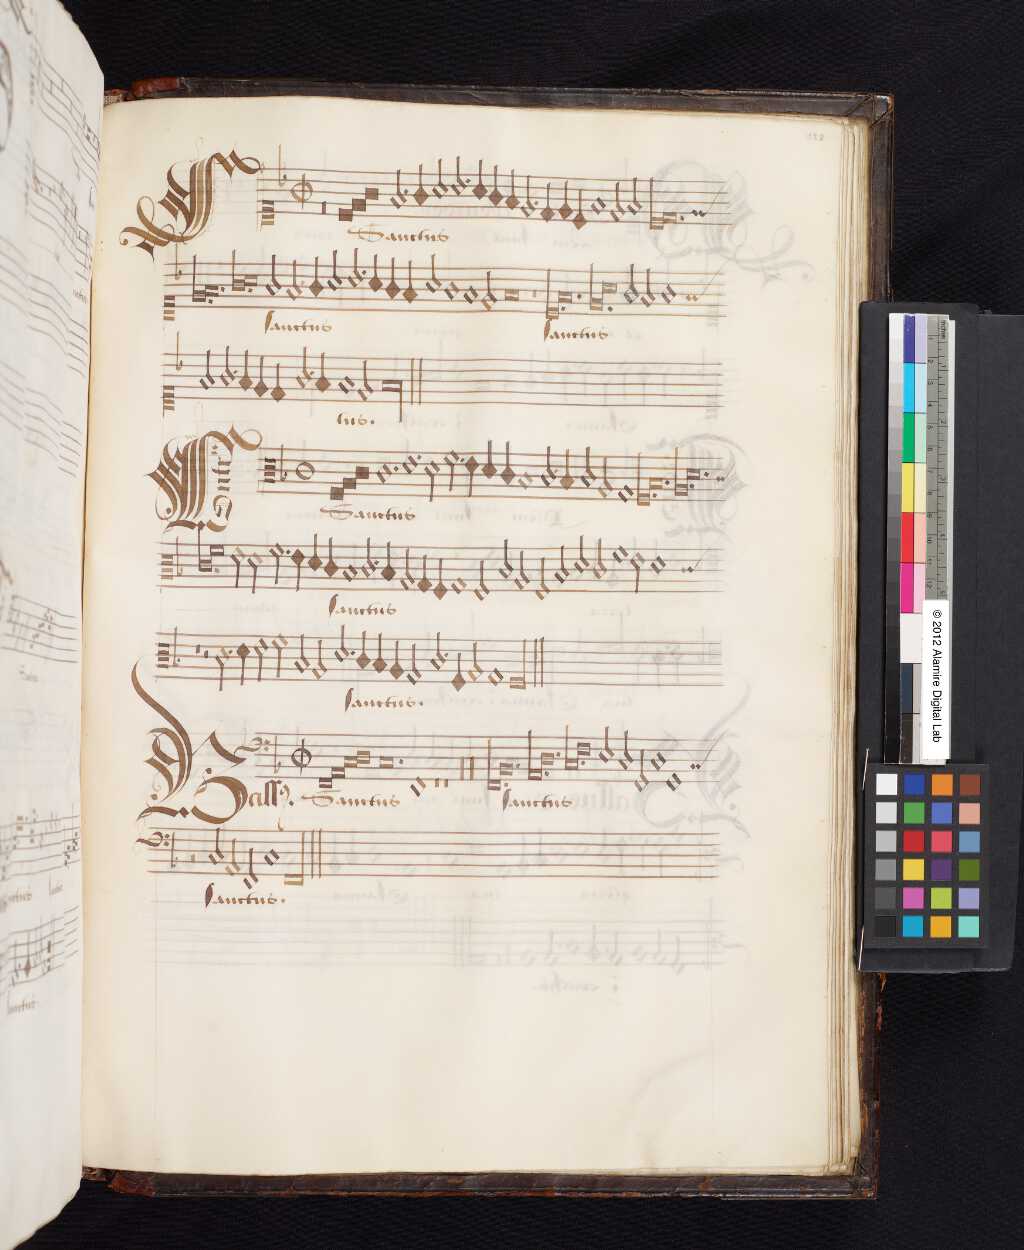 Sanctus
sanctus sanctus
tus.
Sanctus
sanctus
sanctus.
Bass9. Sanctus sanctus
sanctus.
© 2012 Alamire Digital Lab